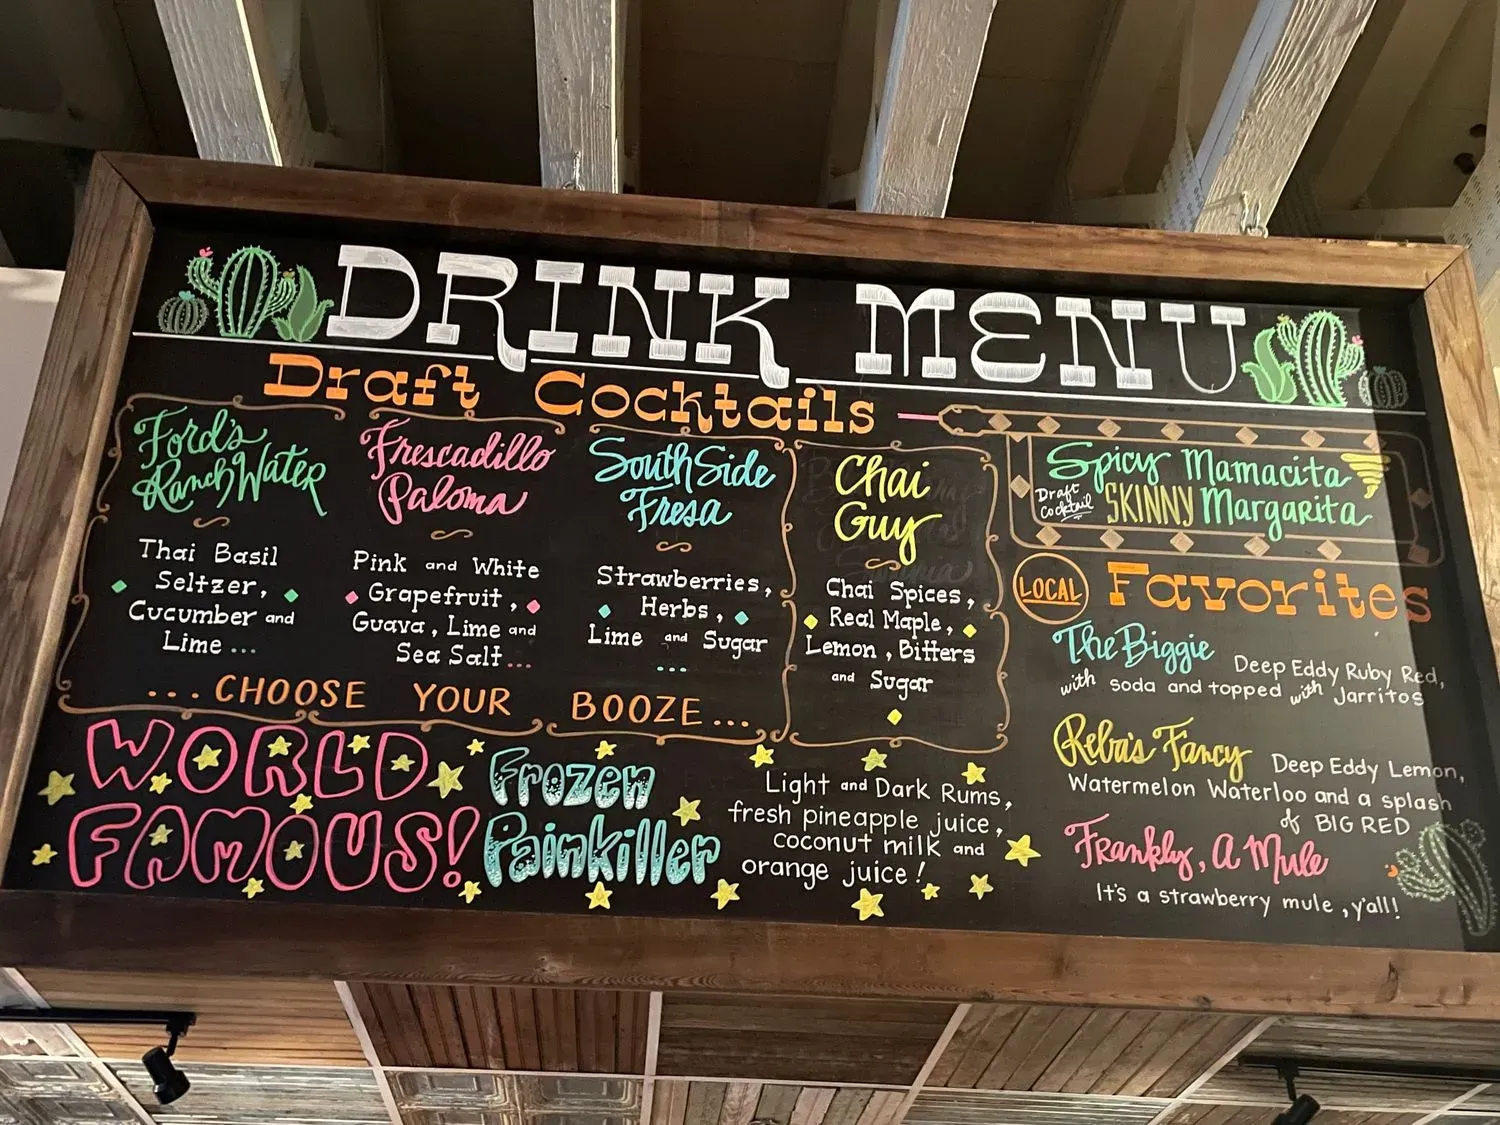 DRINK MENU
Draft Cocktails
Ford's
Ranch Water
Thai Basil
Seltzer,
Cucumber and
Lime ...
Frescadillo
Paloma
Pink and White
Grapefruit,
Guava, Lime and
Sea Salt...
South Side
Fresa
Strawberries,
Herbs,
Lime and Sugar
...
...CHOOSE YOUR BOOZE...
Chai
Guy
Chai Spices,
Real Maple,
Lemon, Bitters
and Sugar
Spicy Mamacita
Draft
Cocktail
SKINNY Margarita
LOCAL Favorites
The Biggie Deep Eddy Ruby Red,
with soda and topped with Jarritos
Reba's Fancy Deep Eddy Lemon,
Watermelon Waterloo and a splash
of BIG RED
Frankly, A Mule
It's a strawberry mule, y'all!
WORLD
FAMOUS!
Frozen
Painkiller
Light and Dark Rums,
fresh pineapple juice,
coconut milk and
orange juice!